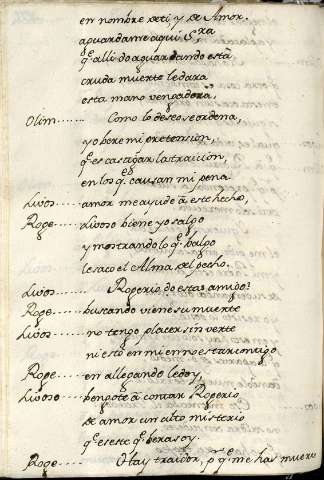 en nombre de ti, y de Amor.
aguardame aqui S.ra
q.e alli do aguardando està
cruda muerte le darà
esta mano vengadora,
Olim....... Como lo deseo se ordena,
y obore mi pretension,
q.e es castigar la traicion,
en los q.e causan mi pena
Livos..... amor me ayude à este hecho,
Roge..... Livoso biene yo salgo
y mostrando lo q.e balgo
le saco el Alma, del pecho.
Livos....... Rogerio do estas amigo?
Roge..... buscando viene su muerte
Livos..... no tengo placer sin verte
ni estò en mi en no estar contigo
Roge..... en allegando le doy,
Livoso..... pongote à contar Rogerio
de amor un alto misterio
q.e es este q.e veras oy.
Roge..... O Hay traidor, p.r q.e me has muerto